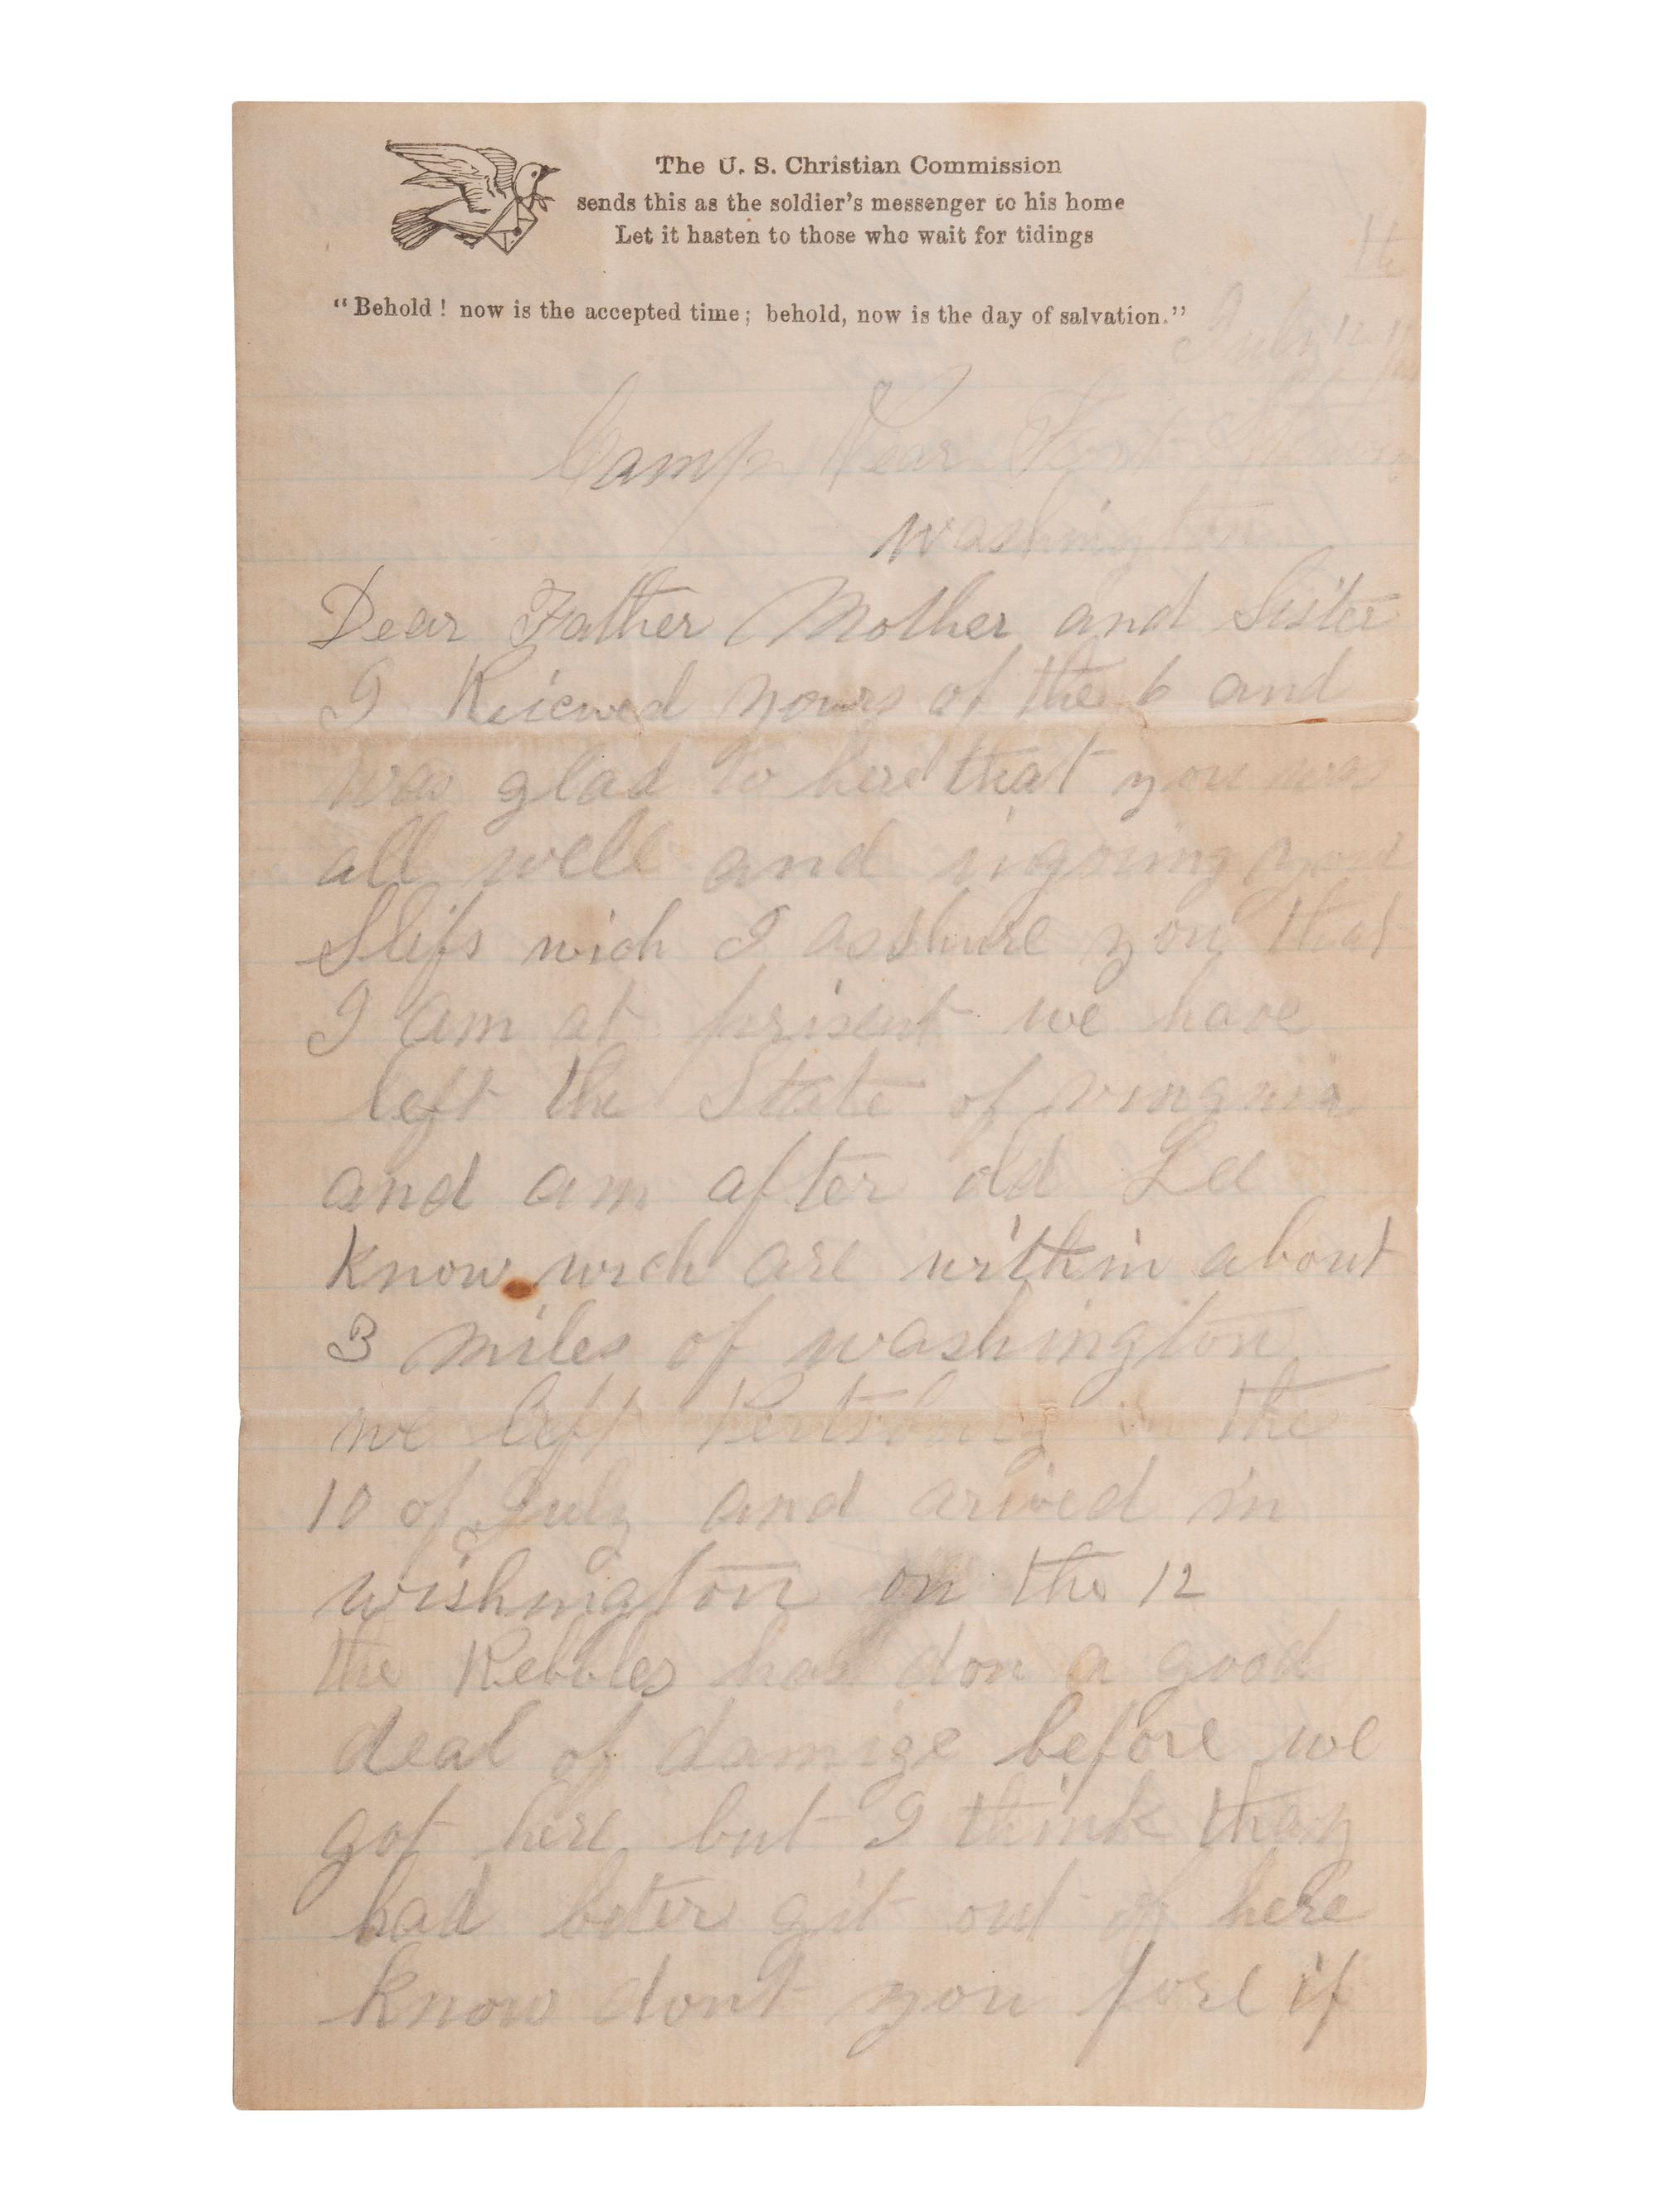 The U. S. Christian Commission
sends this as the soldier's messenger to his home
Let it hasten to those who wait for tidings
"Behold! now is the accepted time; behold, now is the day of salvation."
July 12
Camp Near Fort
Washington
Dear Father Mother and Sister
I Reicwed yours of the 6 and
was glad to here that you was
all well and
wich I asshure you that
I am at prisent we have
left the State of
and am after old Lee
know wich are within about
3 miles of washington
we left in the
10 of July and arived in
wishington on the 12
the Rebbles has don a good
deal of damige before we
got here but I think thay
had beter git out of here
know dont you for if